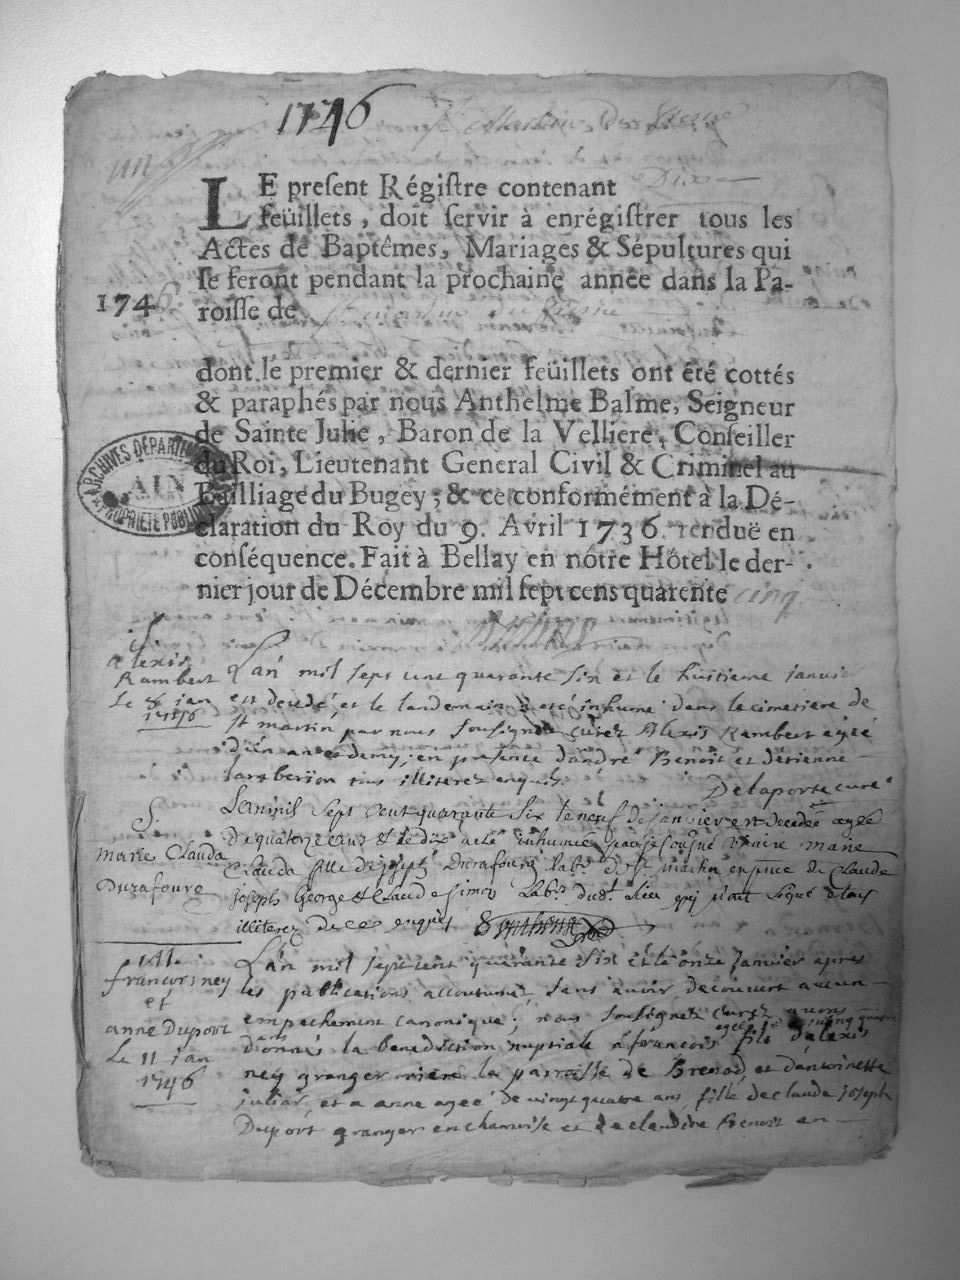 1746
LE present Régistre contenant Dix
feüillets, doit servir à enrégistrer tous les
Actes de Baptêmes, Mariages & Sépultures qui
se feront pendant la prochaine année dans la Pa-
1746
roisse de St martin du fresne
dont le premier & dernier feüillets ont été cottés
& paraphés par nous Anthelme Balme, Seigneur
de Sainte Julie, Baron de la Velliere, Conseiller
du Roi, Lieutenant General Civil & Criminel au
Bailliage du Bugey; & ce conformément à la Dé-
claration du Roy du 9. Avril 1736. renduë en
conséquence. Fait à Bellay en nôtre Hôtel le der-
nier jour de Décembre mil sept cens quarente cinq
ARCHIVES DÉPARTEMENTALES
AIN
PROPRIÉTÉ PUBLIQUE
S.
alexis
Rambert
Le 8 jan
1746
Lan mil sept cent quarante six et le huitieme janvi
est decedé et le landemain a eté inhumé dans le cimetiere de
st martin par nous soussigné curez Alexis Rambert agée
d'un an et demy, en presence d'andré Benoit et detienne
lamberion tous illiterez enquis
Delaporte curé
S.
marie Clauda
Durafourg
Lan mil sept cent quarante six le neuf de janvier est decedée agée
de quatorze ans et le dix a eté inhumée par je sousigné vicaire marie
Clauda fille de joseph Durafourg lab.r de St martin en p.nce de Claude
joseph George et Claude Simon lab.rs dud.t lieu qui n'ont signé etans
illiterez de ce enquis
françois ney
et
anne Duport
Le 11 jan
1746
Lan mil sept cent quarante six et le onze janvier apres
les publications accoutumez sans avoir decouvert aucun
empechement canonique; nous soussignez curez avons
donnés la benediction nuptiale a francois agée de vingt quatre ans fils d'alexis
ney granger riere la parroisse de Brenod et dantoinette
juliar, et a anne agée de vingt quatre ans fille de claude joseph
Duport granger en chamoise et de claudine Benoit en